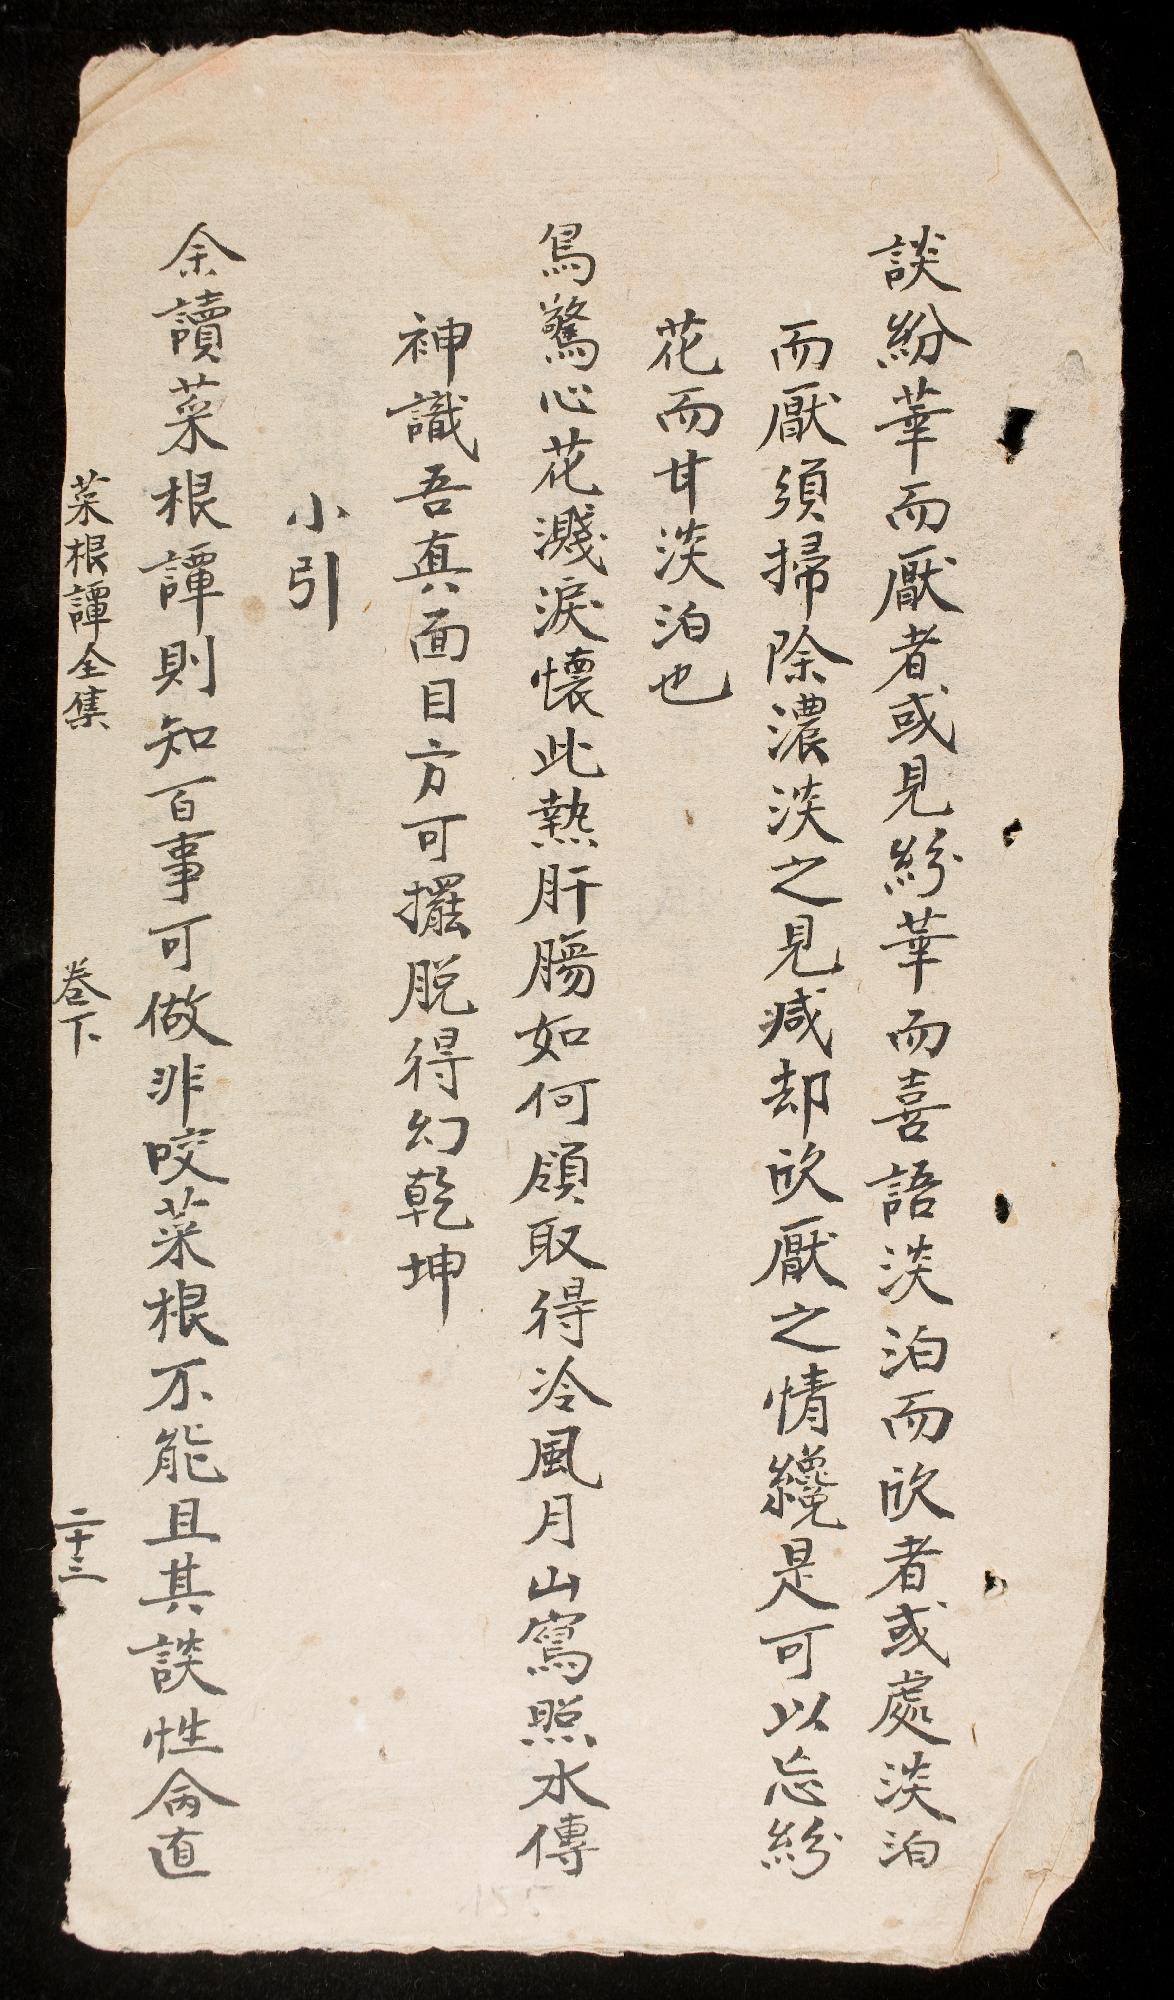 談紛華而厭者或見紛華而喜語淡泊而欣者或處淡泊
而厭須掃除濃淡之見减却欣厭之情纔是可以忘紛
花而甘淡泊也
鳥驚心花濺淚懷此熱肝腸如何領取得冷風月山寫照水傳
神識吾真面目方可擺脫得幻乾坤
小引
余讀菜根譚則知百事可做非咬菜根不能且其談性命直
菜根譚全集 卷下 二十三